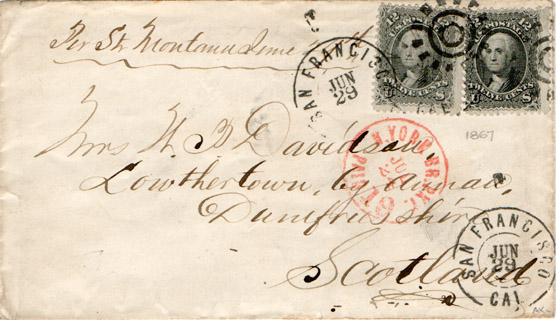 Per St Montana June
12 U.S. POSTAGE 12
TWELVE CENTS
12 U.S. POSTAGE 12
TWELVE CENTS
SAN FRANCISCO
JUN
29
1867
Mrs W. B. Davidson,
N. YORK BR. PKT.
PAID
Lowthertown, by Annan,
Dumfriesshire
Scotland
SAN FRANCISCO
JUN
29
CAL